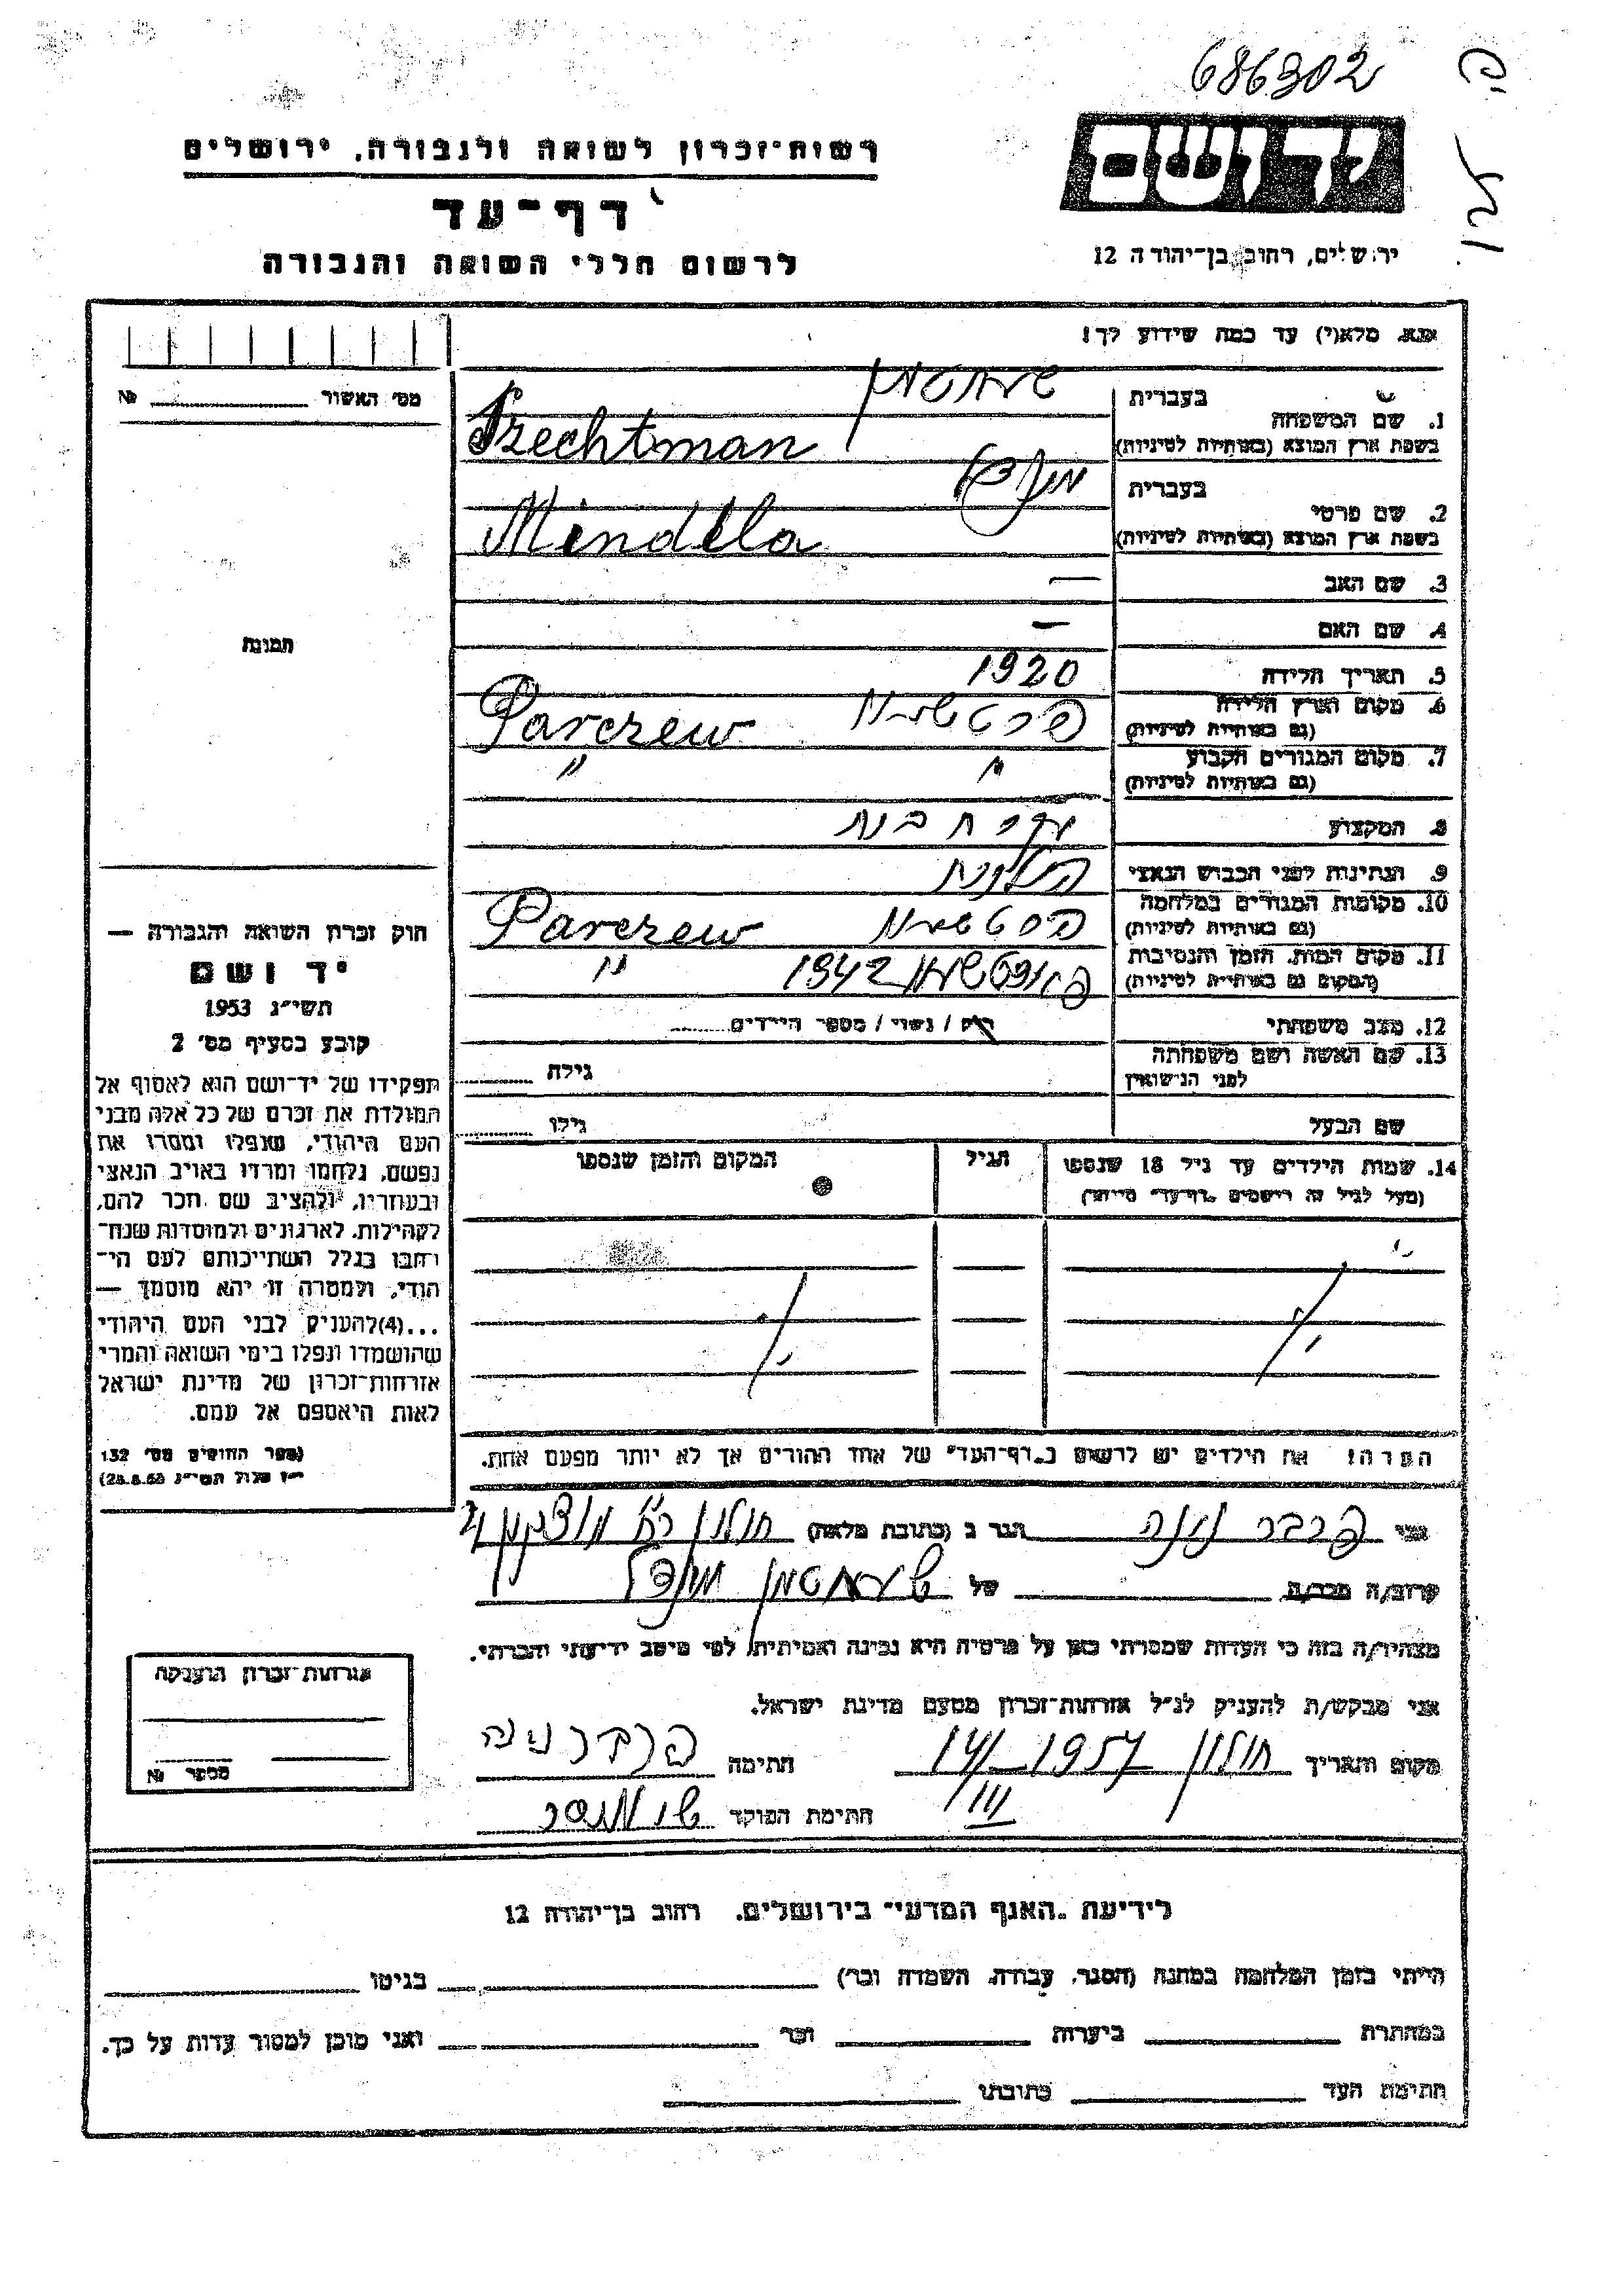 686302
רשות־זכרון לשואה ולגבורה, ירושלים
דף־עד
לרשום חללי השואה והגבורה
יד ושם
ירושלים, רחוב בן־יהודה 12
אנא, מלא(י) עד כמה שידוע לך!
מס׳ האשור № 
1. שם המשפחה
בעברית
בשפת ארץ המוצא (באותיות לטיניות)
Szechtman
2. שם פרטי
בעברית
בשפת ארץ המוצא (באותיות לטיניות)
Mindela
3. שם האב —
4. שם האם —
תמונה
5. תאריך הלידה 1920
6. מקום וארץ הלידה
(גם באותיות לטיניות)
Parczew
7. מקום המגורים הקבוע " "
(גם באותיות לטיניות)
8. המקצוע
9. הנתינות לפני הכבוש הנאצי פולנית
10. מקומות המגורים במלחמה
(גם באותיות לטיניות)
Parczew
11. מקום המות, הזמן והנסיבות 1942 "
(המקום גם באותיות לטיניות)
12. מצב משפחתי רוק / נשוי / מספר הילדים
13. שם האשה ושם משפחתה
לפני הנישואין
גילה
שם הבעל גילו
14. שמות הילדים עד גיל 18 שנספו
(מעל לגיל זה רושמים "דף־עד" מיוחד)
הגיל
המקום והזמן שנספו
הערה! את הילדים יש לרשום ב"דף־העד" של אחד ההורים אך לא יותר מפעם אחת.
חוק זכרון השואה והגבורה —
יד ושם
תשי״ג 1953
קובע בסעיף מס׳ 2
תפקידו של יד־ושם הוא לאסוף אל
המולדת את זכרם של כל אלה מבני
העם היהודי, שנפלו ומסרו את
נפשם, נלחמו ומרדו באויב הנאצי
ובעוזריו, ולהציב שם וזכר להם,
לקהילות, לארגונים ולמוסדות שנח־
רחבו בגלל השתייכותם לעם הי־
הודי, ולמטרה זו יהא מוסמך —
...(4)להעניק לבני העם היהודי
שהושמדו ונפלו בימי השואה והמרי
אזרחות־זכרון של מדינת ישראל
לאות היאספם אל עמם.
(ספר החוקים מס׳ 132
י״ז אלול תשי״ג 28.8.53)
אני פרבר הגר ב (כתובת מלאה) חולון
קרוב/ה מכר/ה של שכטמן מינדל
מצהיר/ה בזה כי העדות שמסרתי כאן על פרטיה היא נכונה ואמיתית, לפי מיטב ידיעתי והכרתי.
אני מבקש/ת להעניק לנ״ל אזרחות־זכרון מטעם מדינת ישראל.
מקום ותאריך חולון 1957 14/III חתימה
חתימת הפוקד
אזרחות־זכרון הוענקה
מספר №
לידיעת "האגף המדעי" בירושלים, רחוב בן־יהודה 12
הייתי בזמן המלחמה במחנה (הסגר, עבודה, השמדה וכו׳) בגיטו
במחתרת ביערות וכו׳ ואני מוכן למסור עדות על כך.
חתימת העד כתובתו